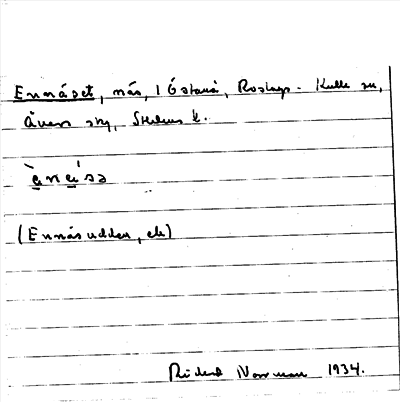 Ennäset, näs, i Östanå, Roslags-Kulla sn,
även sky, Steens k.
ènǝísǝ
(Ennäsudden, ek)
Rickard Norrman 1934.